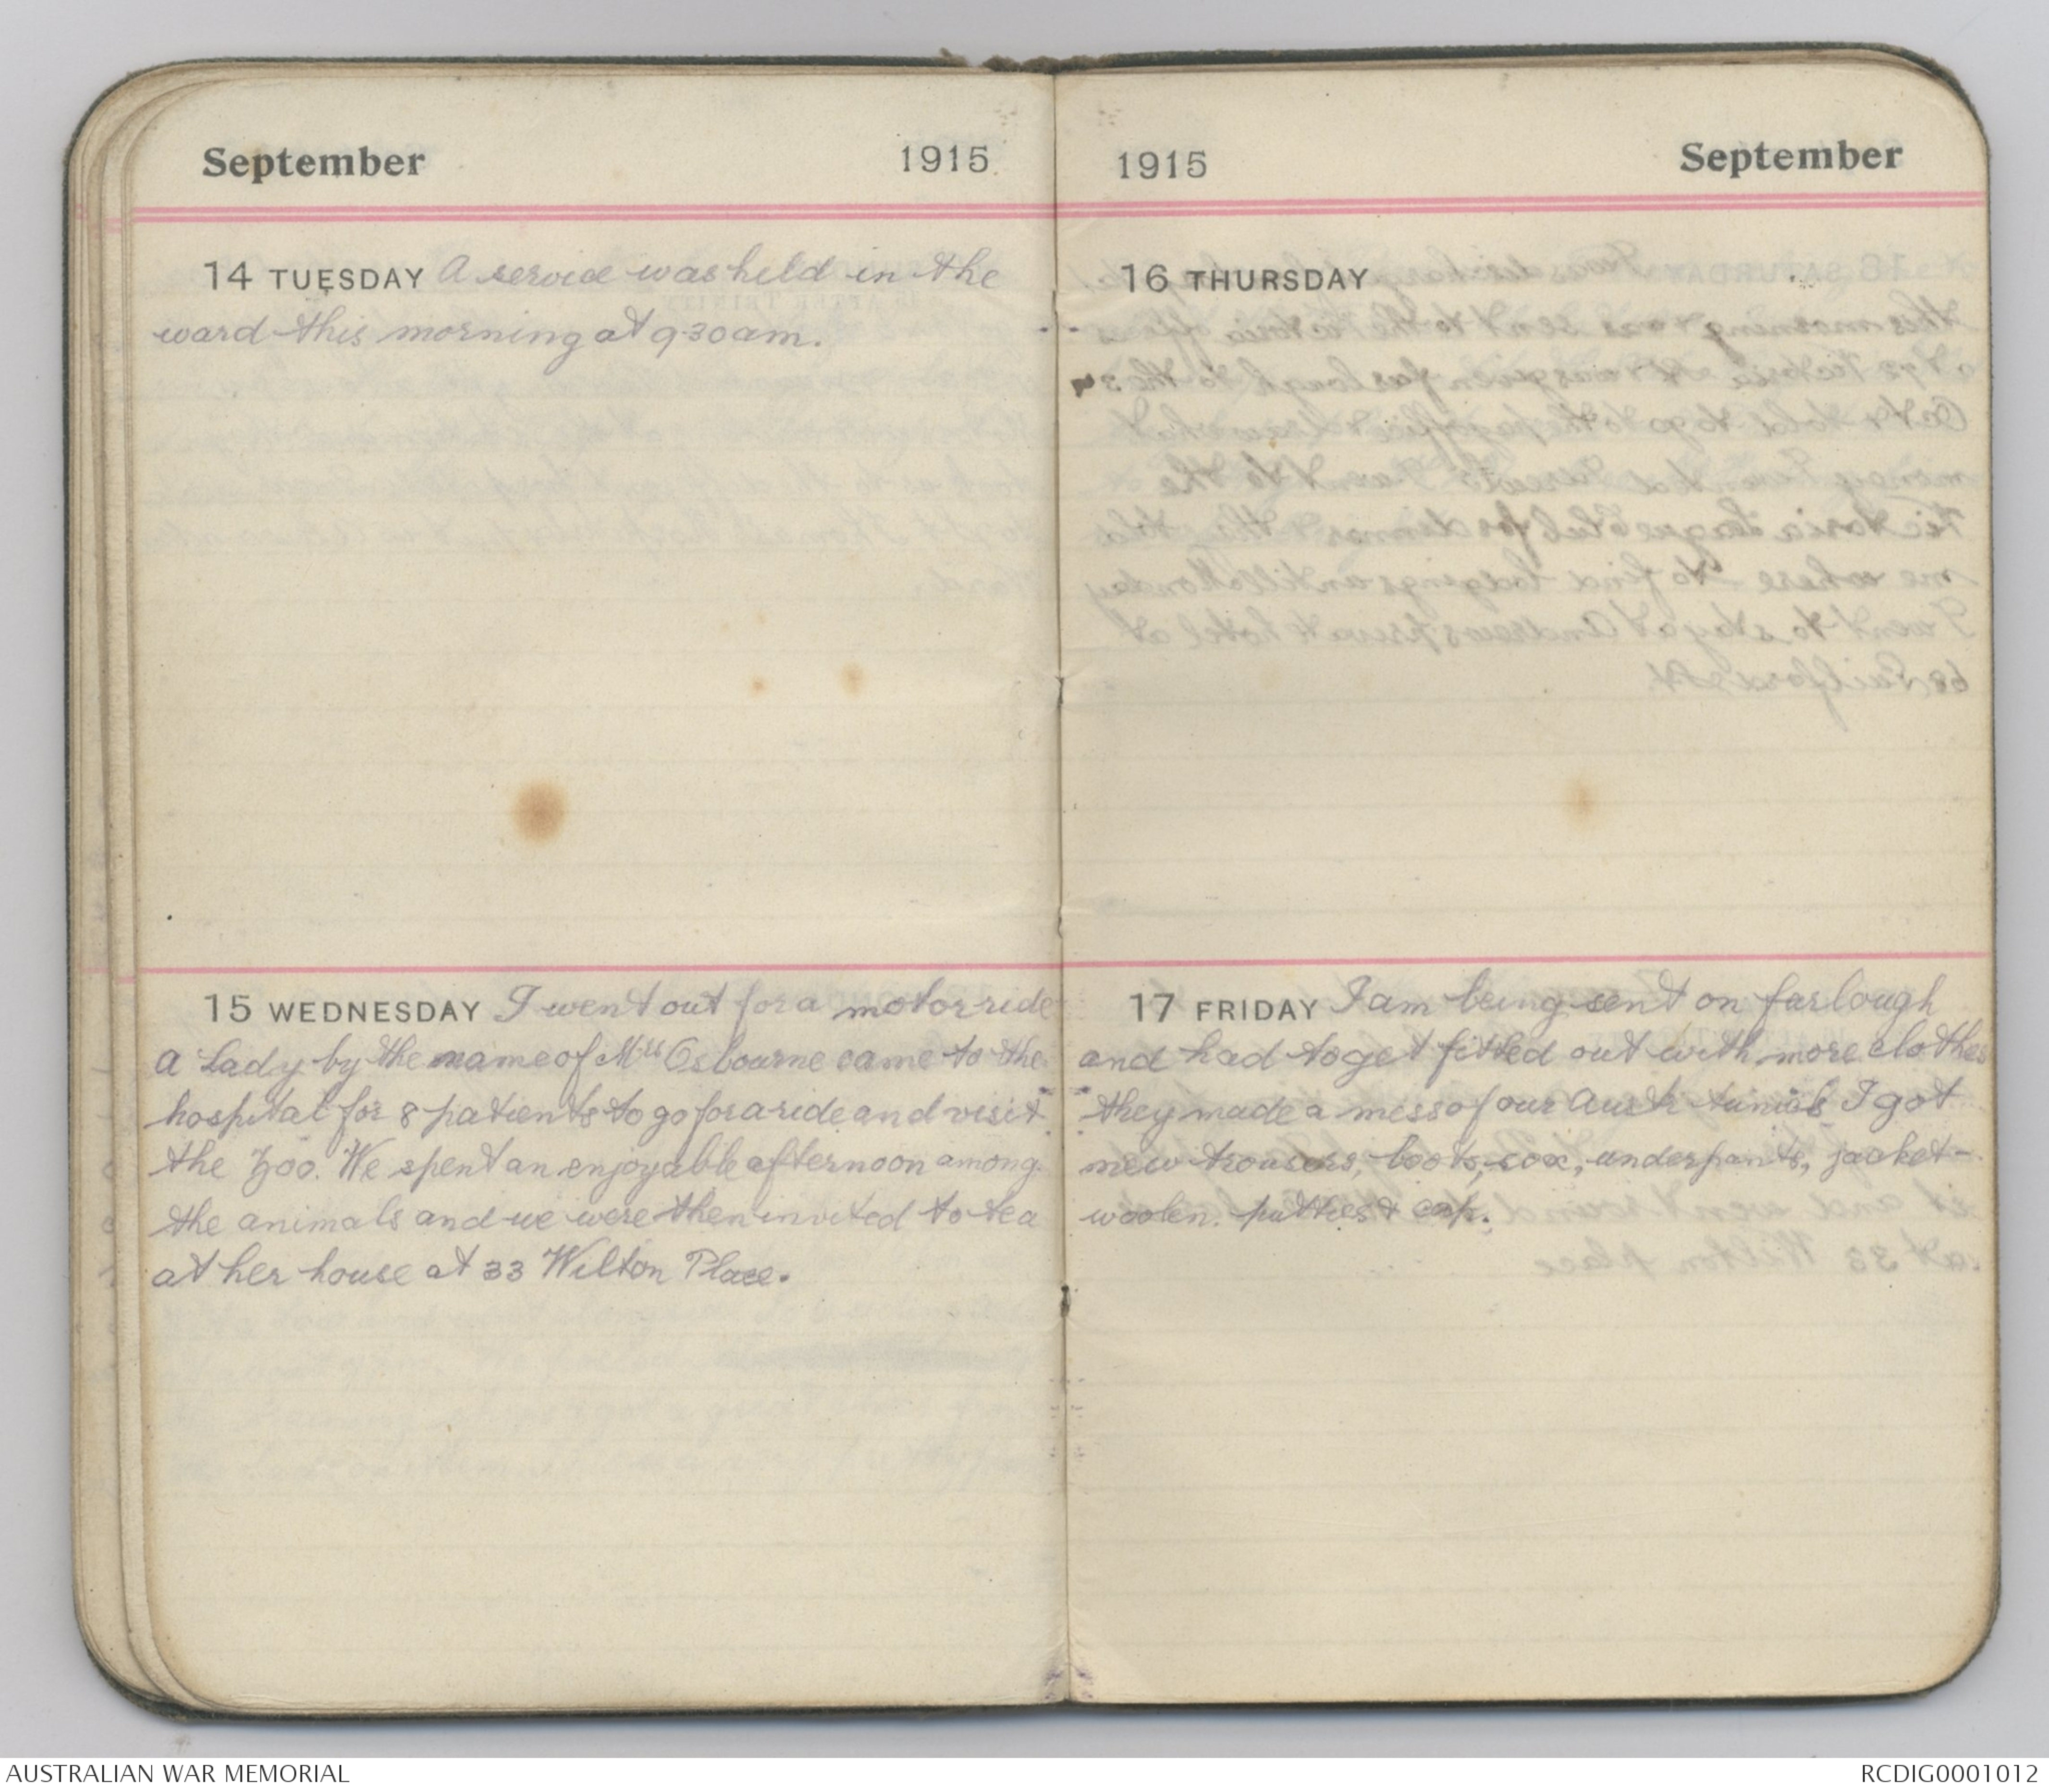 September 1915
14 TUESDAY A service was held in the
ward this morning at 9.30am.
15 WEDNESDAY I went out for a motor ride
a Lady by the name of Mrs Osbourne came to the
hospital for 8 patients to go for a ride and visit
the Zoo. We spent an enjoyable afternoon among
the animals and we were then invited to tea
at her house at 33 Wilton Place.
1915 September
16 THURSDAY
17 FRIDAY I am being sent on furlough
and had to get fitted out with more clothes
they made a mess of our Aust tunics I got
new trousers, boots, sox, underpants, jacket-
woolen. putties & cap.
AUSTRALIAN WAR MEMORIAL
RCDIG0001012